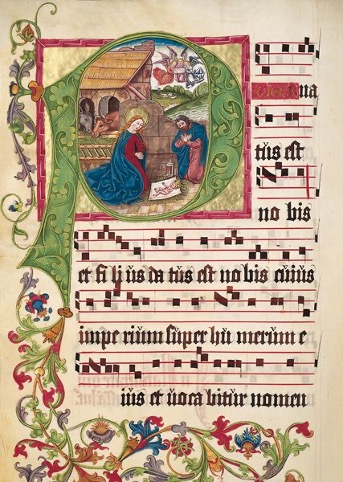 P uer na
tus est
no bis
et fi li us da tus est no bis cuius
impe rium super hu merum e
ius et uoca bitur nomen